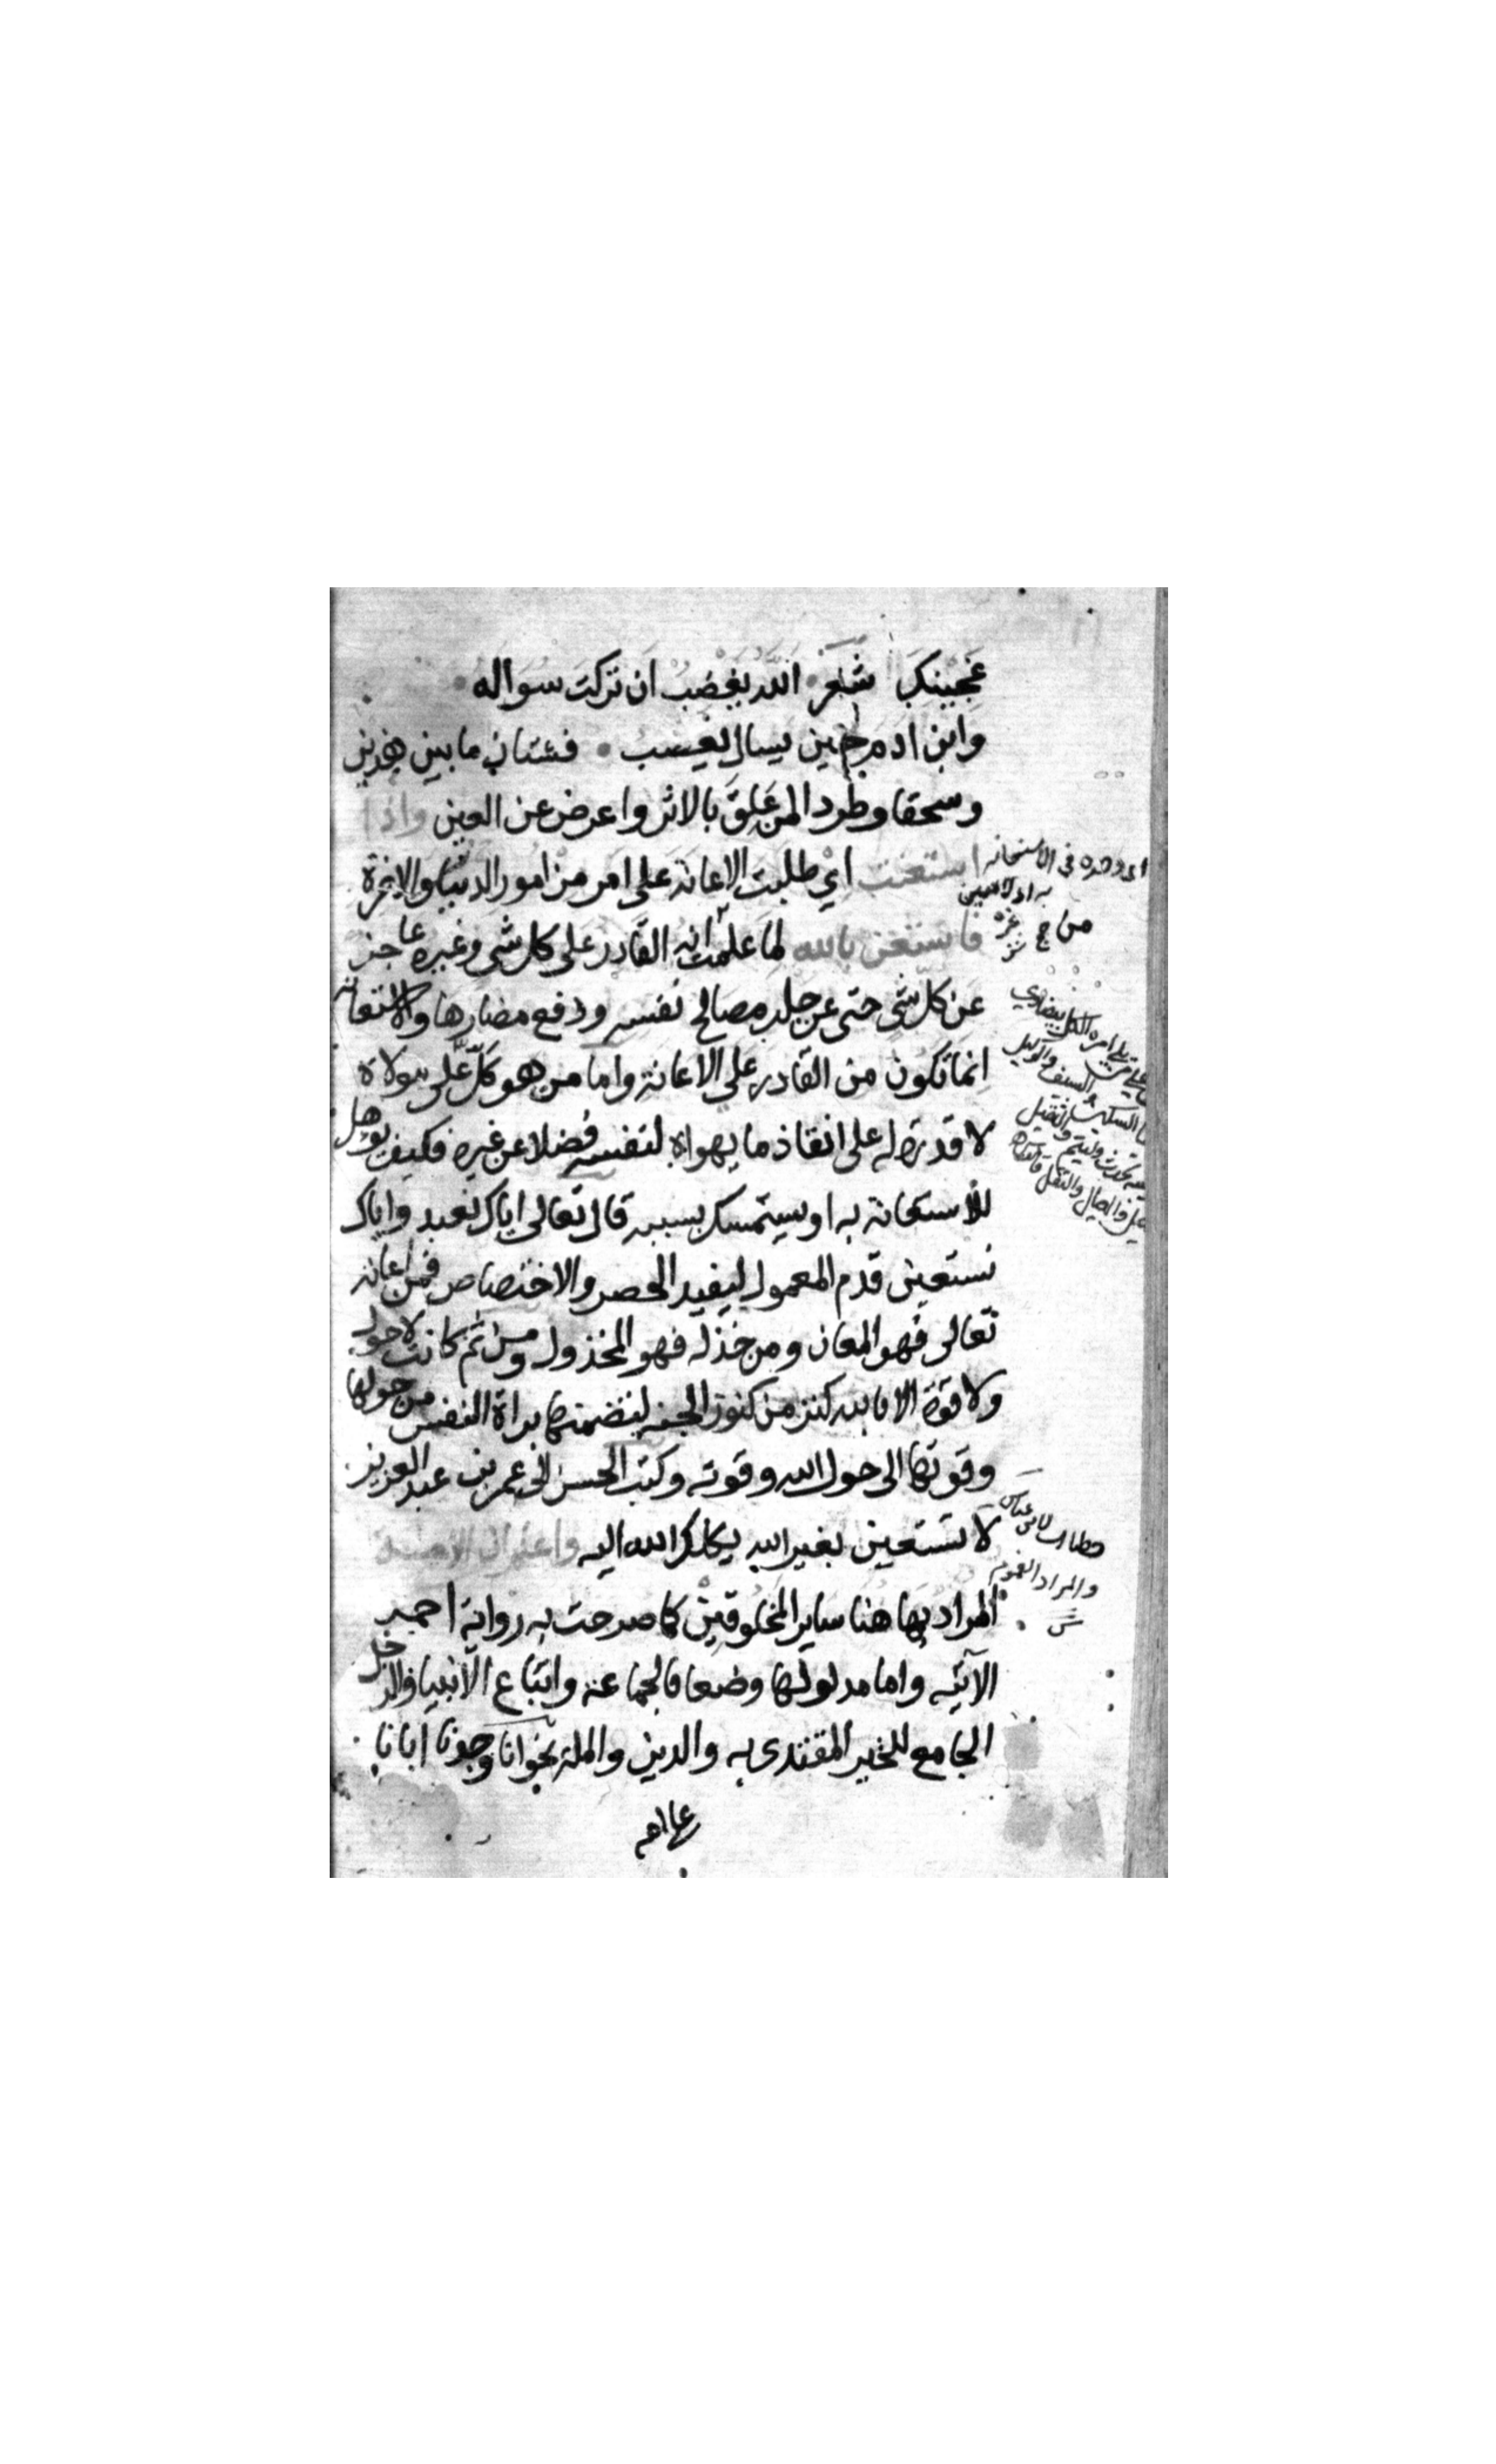 عجينك شعر الله يغضب ان تركت سواله
وابن ادم حين يسال يغضب فشتان ما بين هذين
وسحقا وطرد المن علق بالاثر واعرض عن العين واذا
استعنت اي طلبت الاعانة على امر من امور الدنيا والاخرة
فاستعن بالله لما علمت انه القادر على كل شي وغيره عاجز
عن كل شي حتى عن جلب مصالح نفسه ودفع مضارها والاستعانة
انما تكون من القادر على الاعانة واما من هو كل على مولاه
لا قدرة له على انفاذ ما يهواه لنفسه فضلا عن غيره فكيف يوهل
للاستعانة به او يستمسك بسببه قال تعالى اياك نعبد واياك
نستعين قدم المعمول ليفيد الحصر والاختصاص فمن اعانه
تعالى فهو المعان ومن خذله فهو المخذول ومن ثم كانت لا حول
ولا قوة الا بالله كنز من كنوز الجنه لتضمنها براة النفس من حولها
وقوتها الى حول الله وقوته وكتب الحسن الى عمر بن عبد العزيز
لا تستعين بغير الله يكلك الله اليه واعلم ان الامة
المراد بها هنا ساير المخلوقين كما صرحت به رواية احمد
الآتيه واما مدلولها وضعا فالجماعة واتباع الانبيا والرجل
الجامع للخير المقتدى به والدين والملة نحو انا وجدنا ابانا
على امة
اي وحده في الاستعانه
به اذ لا معين
من ج غيره
خطاب لابن عباس
والمراد العموم